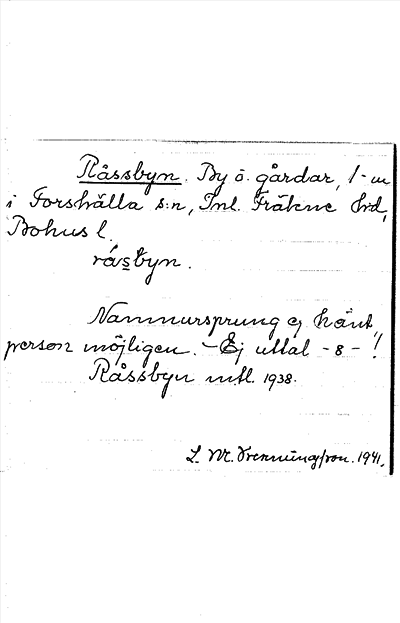 Råssbyn. By o. gårdar, 1-m
i Forshälla s:n, Inl. Fräkne hrd,
Bohus l.
råsbyn.
Namnursprung ej känt,
person möjligen. - Ej uttal -8-!
Råssbyn mtl. 1938.